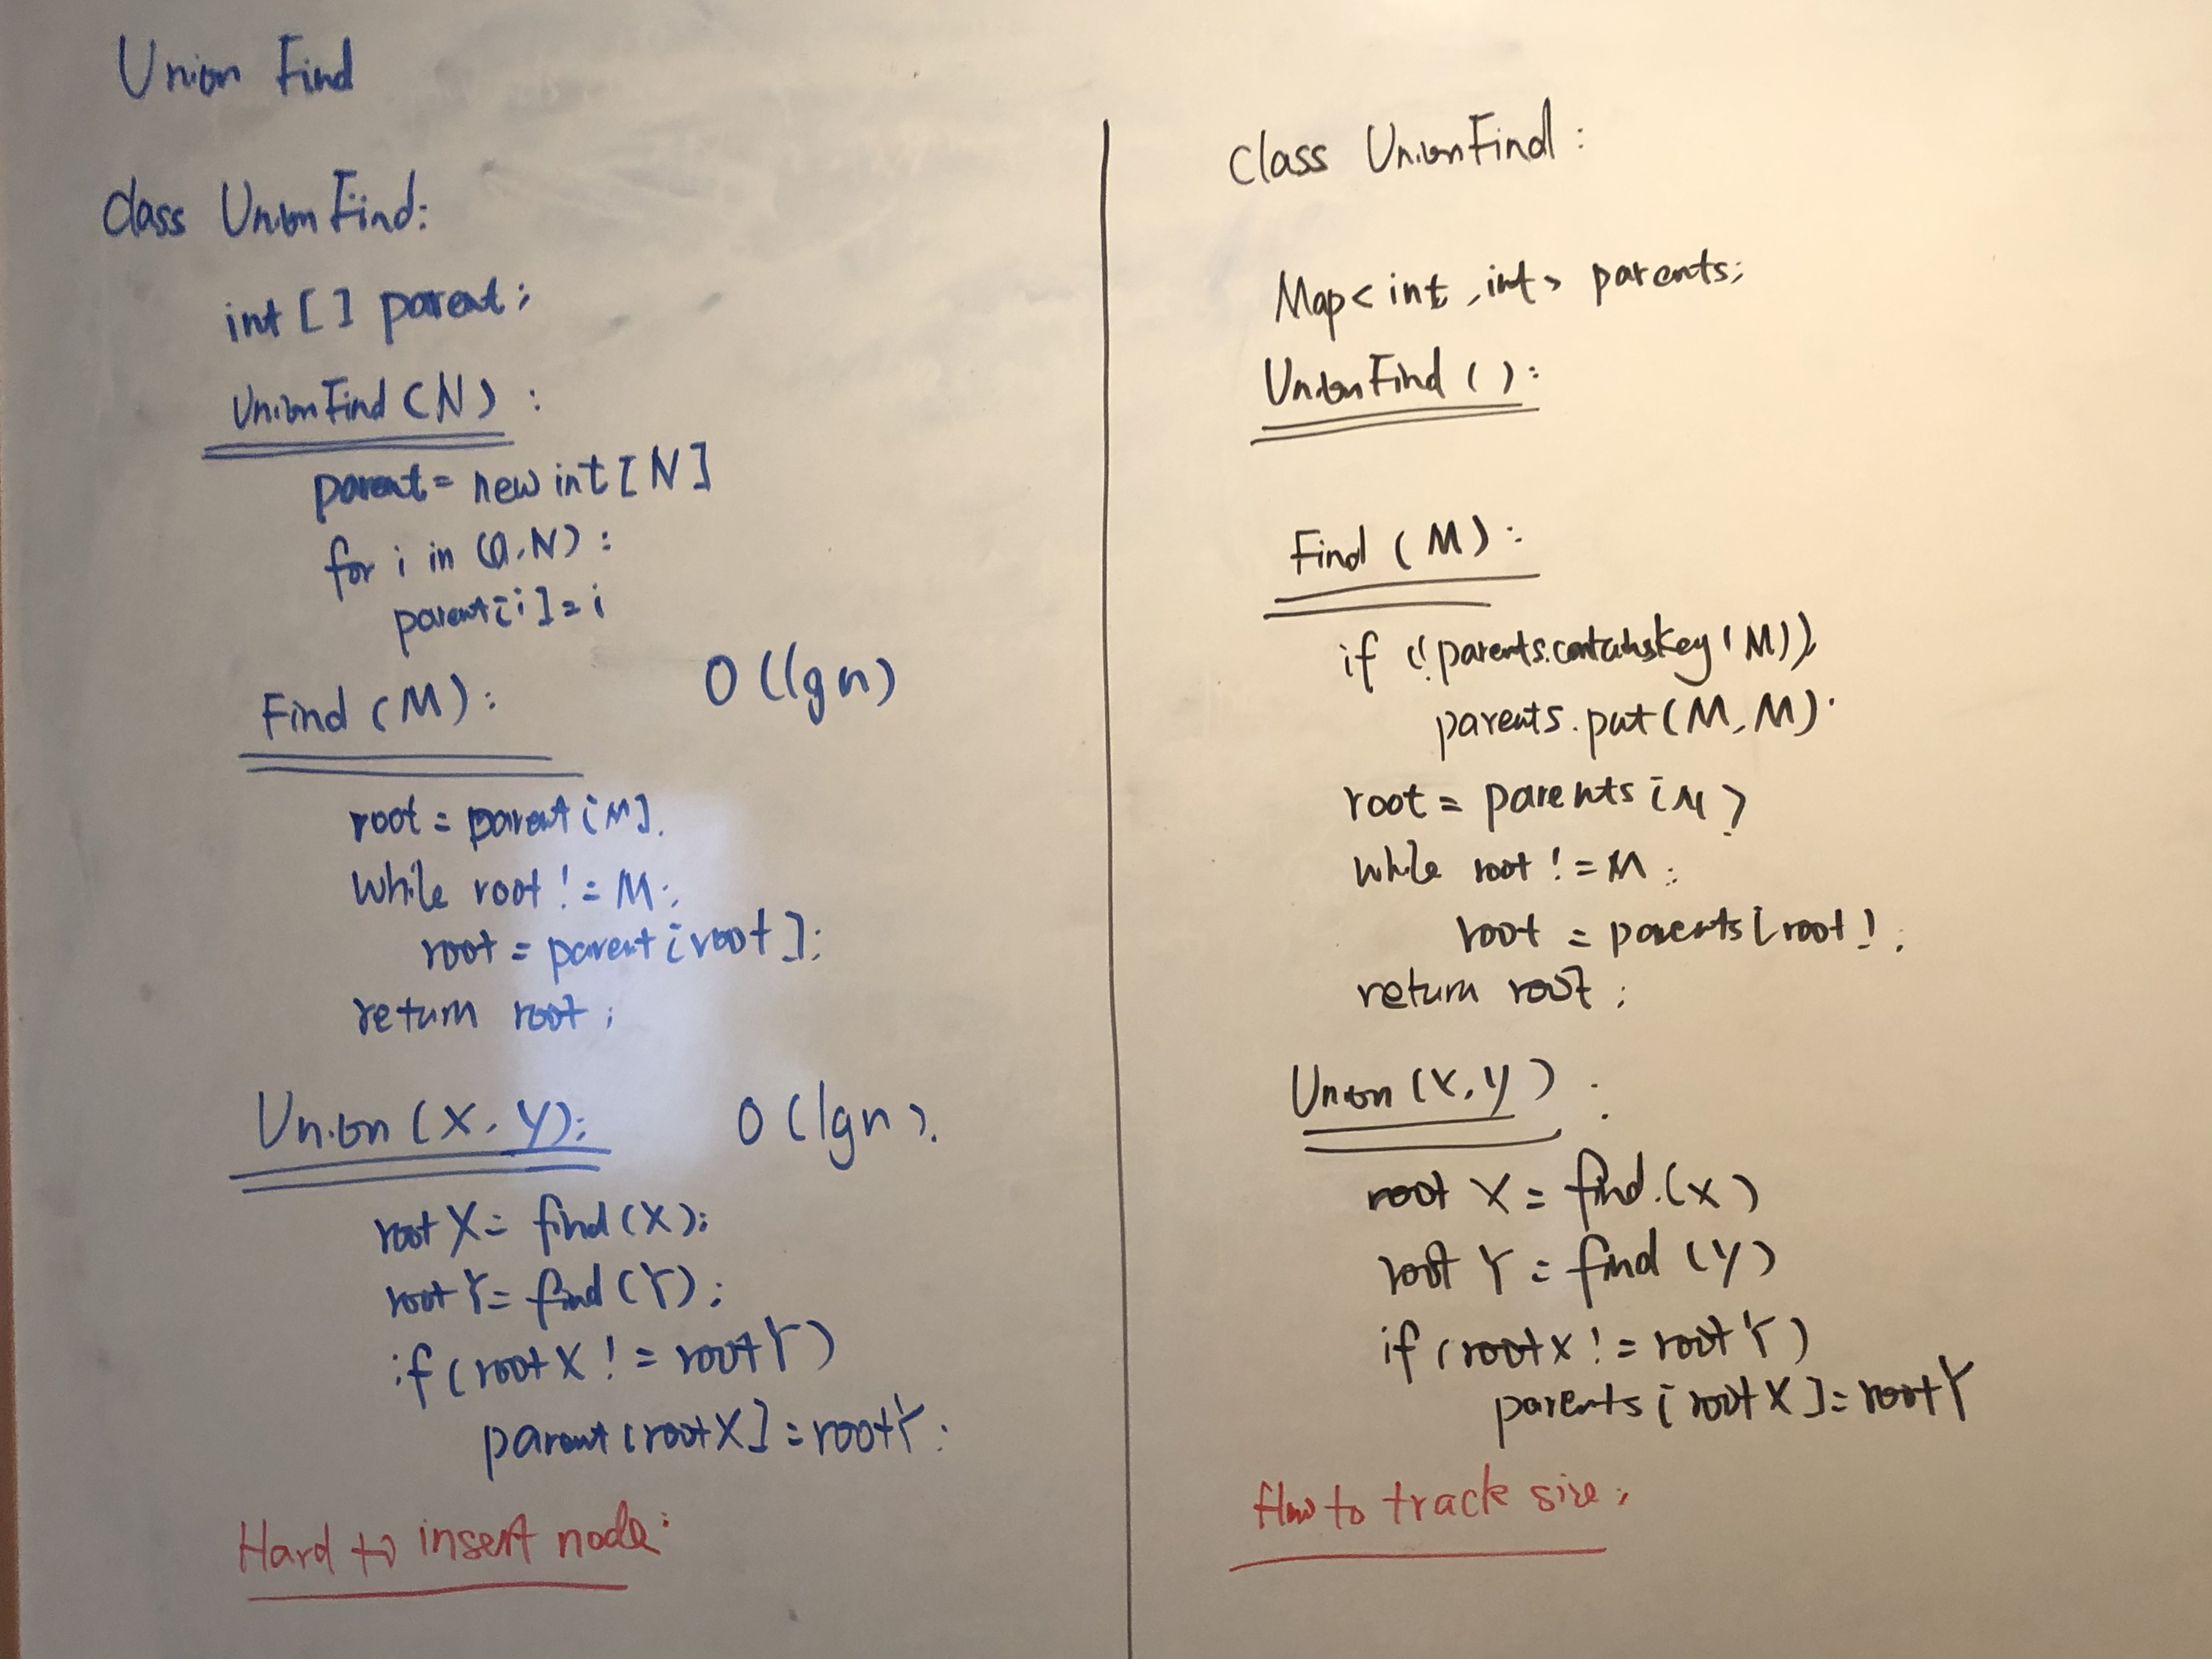 Union Find
class UnionFind:
int [ ] parent;
UnionFind (N) :
parent = new int [N]
for i in (0,N) :
parent[i] = i
Find (M) : O(lgn)
root = parent[M].
while root != M;
root = parent[root];
return root;
Union (X, Y); O(lgn).
rootX = find(X);
rootY = find(Y);
if (rootX != rootY)
parent[rootX] = rootY;
Hard to insert node:
class UnionFind :
Map<int, int> parents;
UnionFind ( ) :
Find (M) :
if (!parents.containsKey(M)),
parents.put(M,M).
root = parents[M]
while root != M :
root = parents[root];
return root;
Union (X,Y) :
rootX = find.(X)
rootY = find (Y)
if (rootX != rootY)
parents[rootX] = rootY
How to track size;